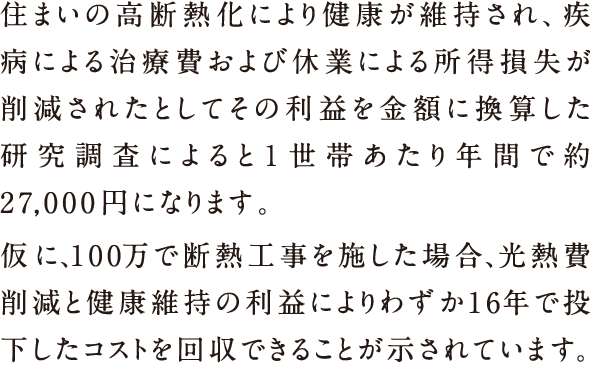 住まいの高断熱化により健康が維持され、疾
病による治療費および休業による所得損失が
削減されたとしてその利益を金額に換算した
研究調査によると1世帯あたり年間で約
27,000円になります。
仮に、100万で断熱工事を施した場合、光熱費
削減と健康維持の利益によりわずか16年で投
下したコストを回収できることが示されています。